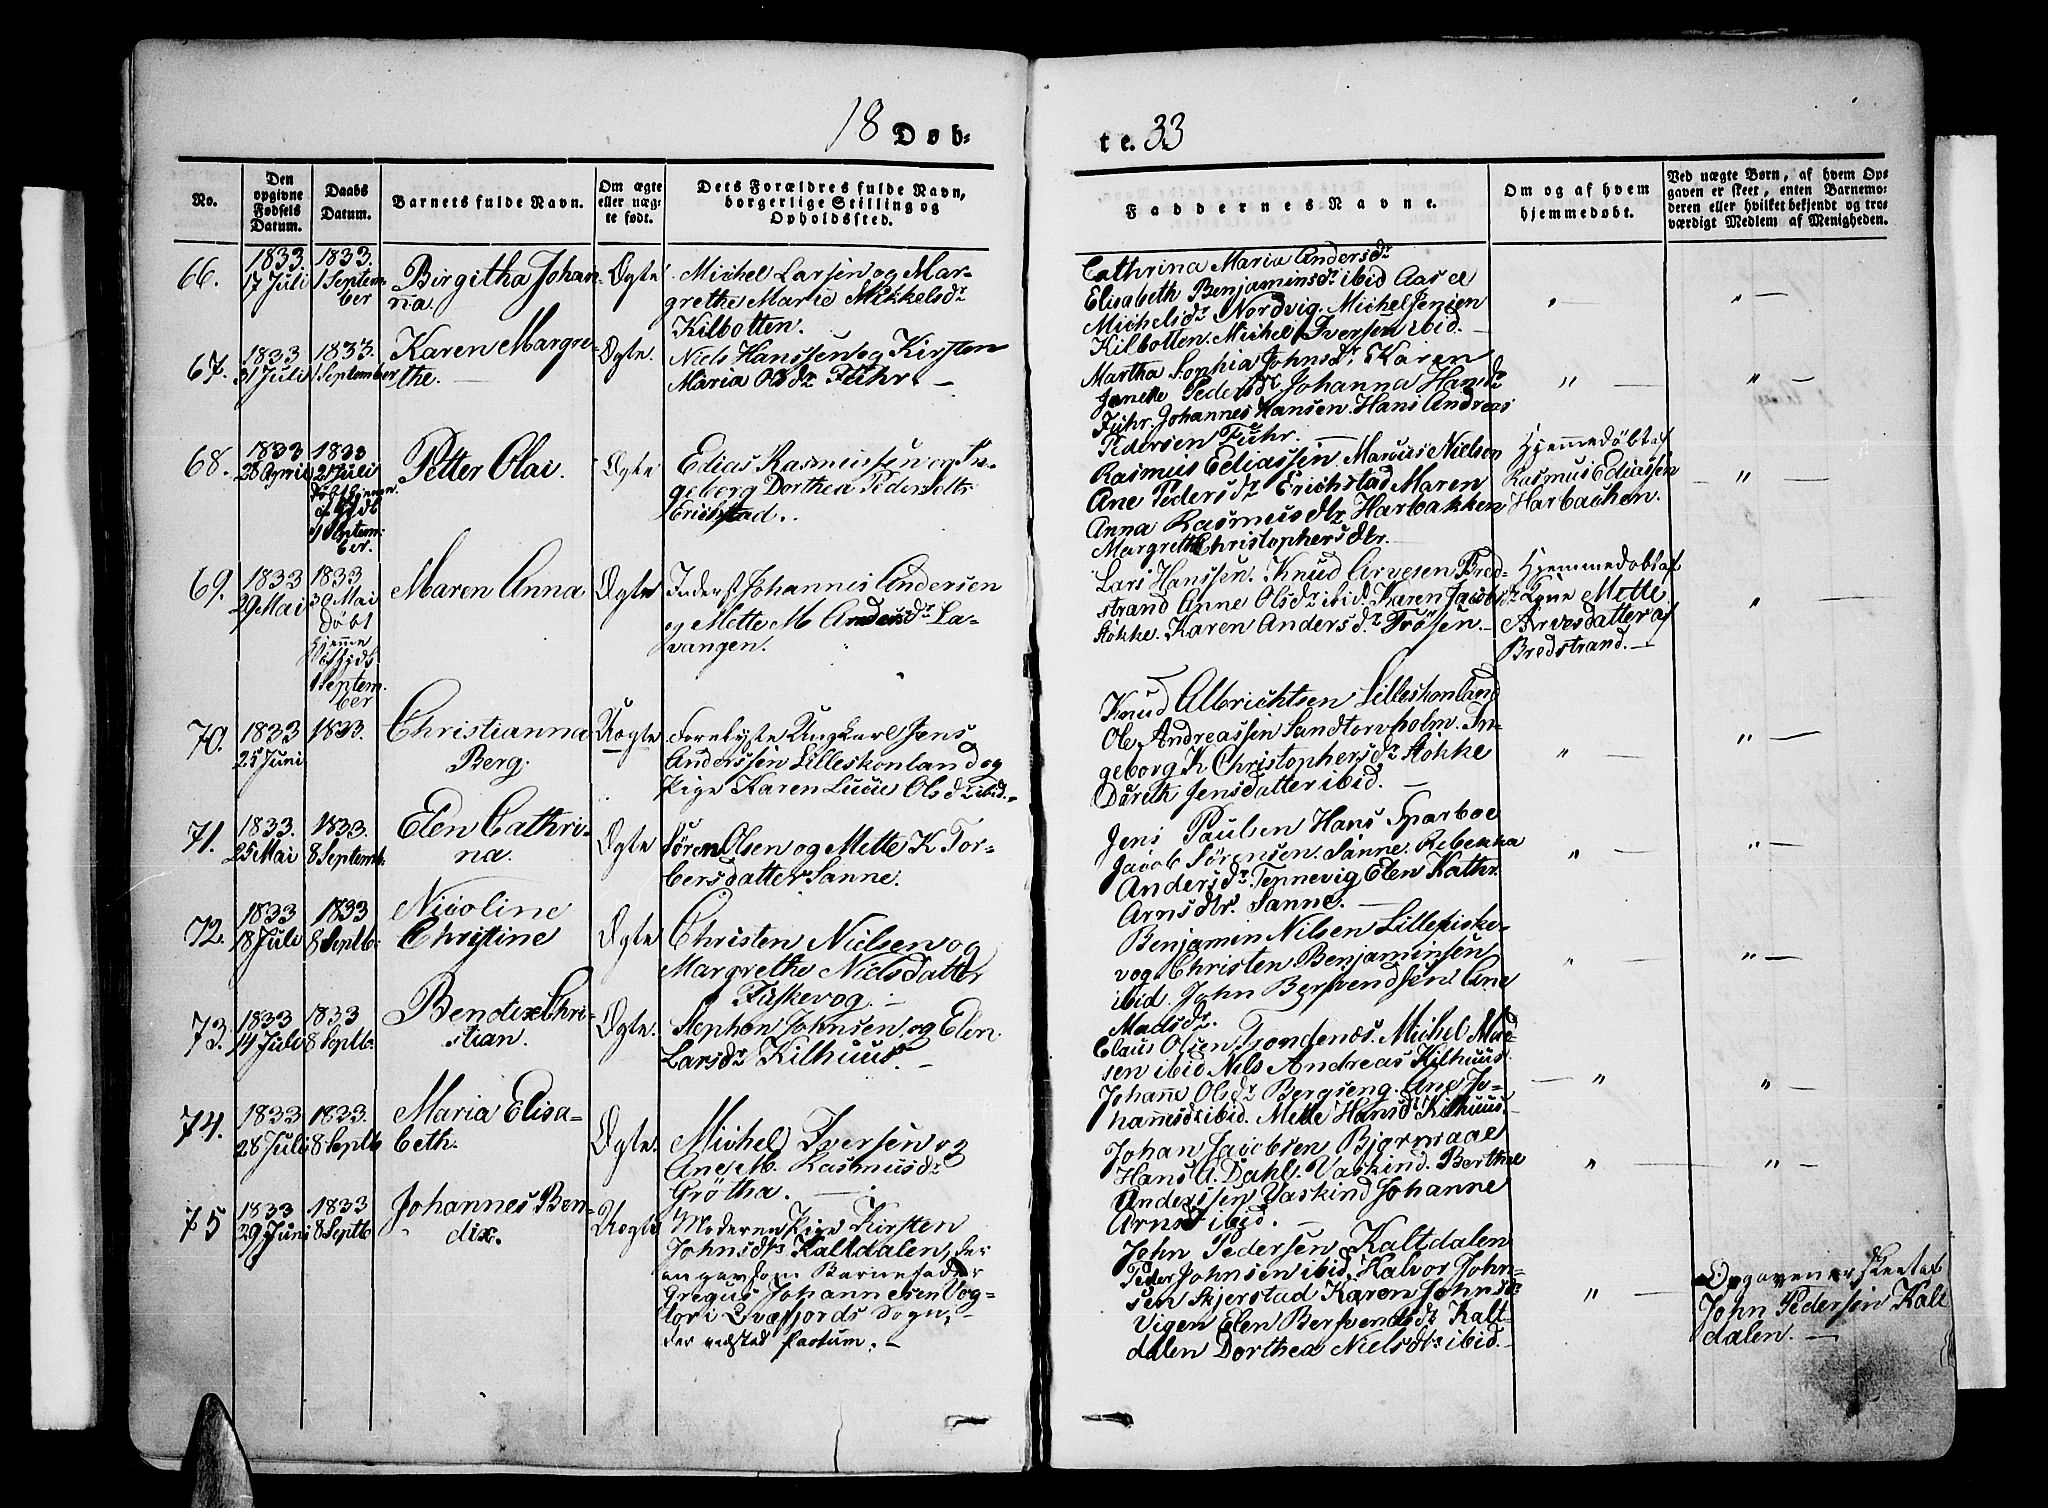 18 Døb-
te. 33
No.
Den opgivne Fødsels Datum.
Daabs Datum.
Barnets fulde Navn.
Om ægte eller uæg-
te født.
Dets Forældres fulde Navn,
borgerlige Stilling og
Opholdssted.
Faddernes Navne.
Om og af hvem
hjemmedøbt.
Ved uægte Børn, af hvem Op-
gaven er skeet, enten Barnemo-
deren eller hvilket bekjendt og tro-
værdigt Medlem af Menigheden.
66.
1833
17 Juli
1833.
1 Septem-
ber
Birgitha Johan-
na.
Ægte
Michel Larsen og Mar-
grethe Marie Mikkelsdr
Kilbotten.
Cathrina Maria Andersdr
Elisabeth Benjaminsdr ibid Aasel
Michelsdr Nordvig. Michel Jensen
Kilbotten. Michel Iversen ibid.
67.
1833
31 Juli
1833.
1 September
Karen Margre-
the.
Ægte.
Niels Hanssen og Kirsten
Maria Olsdr Fuhr.
Martha Sophia Johnsdr Karen
Janette Pedersdr Johanna Hansdr
Fuhr. Johannes Hansen. Hans Andreas
Pedersen Fuhr.
68.
1833
28 April
1833
21 Juli
døbt hjemme
1 Septem-
ber.
Petter Olai.
Ægte
Edias Rasmussen og In-
geborg Dorthea Pedersdtr
Erichstad.
Rasmus Ediassen. Marcus Nielsen
Ane Pedersdr Erichstad Maren
Anna Rasmusdtr Harbakken
Margreth Christophersdtr.
Hjemmedøbt af
Rasmus Ediassen
Harbachen.
69.
1833
29 Mai
1833
30 Mai
døbt
hjemme
1 Septem-
ber
Maren Anna
Ægte
Inderst Johannes Andersen
og Mette M Andersdr La-
vangen.
Lars Hanssen. Knud Arvesen Bred-
strand Anne Olsdr ibid. Karen Jacobsdr
Støkke. Karen Andersdr Trøsen.
Hjemmedøbt af
Kone Mette
Arvesdatter af
Bredstrand.
70.
1833
25 Juni
1833.
Christianna
Berg.
Uægte
Ungkarl Jens
Anderssen Lilleskonland og
Pige Karen Lucie Olsdr ibid.
Knud Albrichtsen Lilleskonland
Ole Andreassen Sandtorvholm. In-
geborg K Christophersdr Støkke
Doreth Jensdatter ibid.
71.
1833.
25 Mai
1833.
8 Septemb.
Elen Cathri-
na.
Ægte
Søren Olsen og Mette K Tor-
bersdatter Sanne.
Jens Paulsen Hans Sparboe
Jacob Sørensen. Sanne. Rebekka
Andersdr. Tennevig Elen Kathr.
Arnsdtr. Sanne.
72.
1833
18 Juli
1833
8 Septb.
Nicoline
Christine
Ægte
Christen Nielsen og
Margrethe Nielsdatter
Fiskevog.
Benjamin Nilsen Lillefiske-
vog Christen Benjaminsen
ibid. John Bersvendsen. Ane
Madsdr.
73.
1833
14 Juli
1833
8 Septb.
Bendix Chri-
stian.
Ægte.
Stephan Johnsen og Elen
Larsdr Kilhuus.
Claus Olsen Trondenæs. Michel Mad-
sen ibid Nils Andreas Kilhuus.
Johanne Olsdr Bergseng. Ane Jo-
hannesdr ibid. Mette Hansdr Kilhuus.
74.
1833
28 Juli
1833.
8 Septb
Maria Elisa-
beth.
Ægte.
Michel Iversen og
Ane M. Rasmusdr
Grøtha.
Johan Jacobsen Bjørnraae
Hans A. Dahl. Vaskind. Berthe
Anderssen Vaskind Johanne
Arns ibid.
75
1833
29 Juni
1833
8 Septb
Johannes Ben-
dix.
Uægte
Moderen Pige Kirsten
Johnsdtr Kaltdalen, der
angav som Barnefader
Gregus Johannesen Vog-
tor i Qvæfjords Sogn,
John Pedersen Kaltdalen
Peder Johnsen ibid. Halvor John-
sen Skjerstad Karen Johnsdr
Vigen Elen Bersvendsdr Kalt-
dalen Dorthea Nielsdtr ibid.
Opgaven er skeet af
John Pedersen Kalt
dalen.